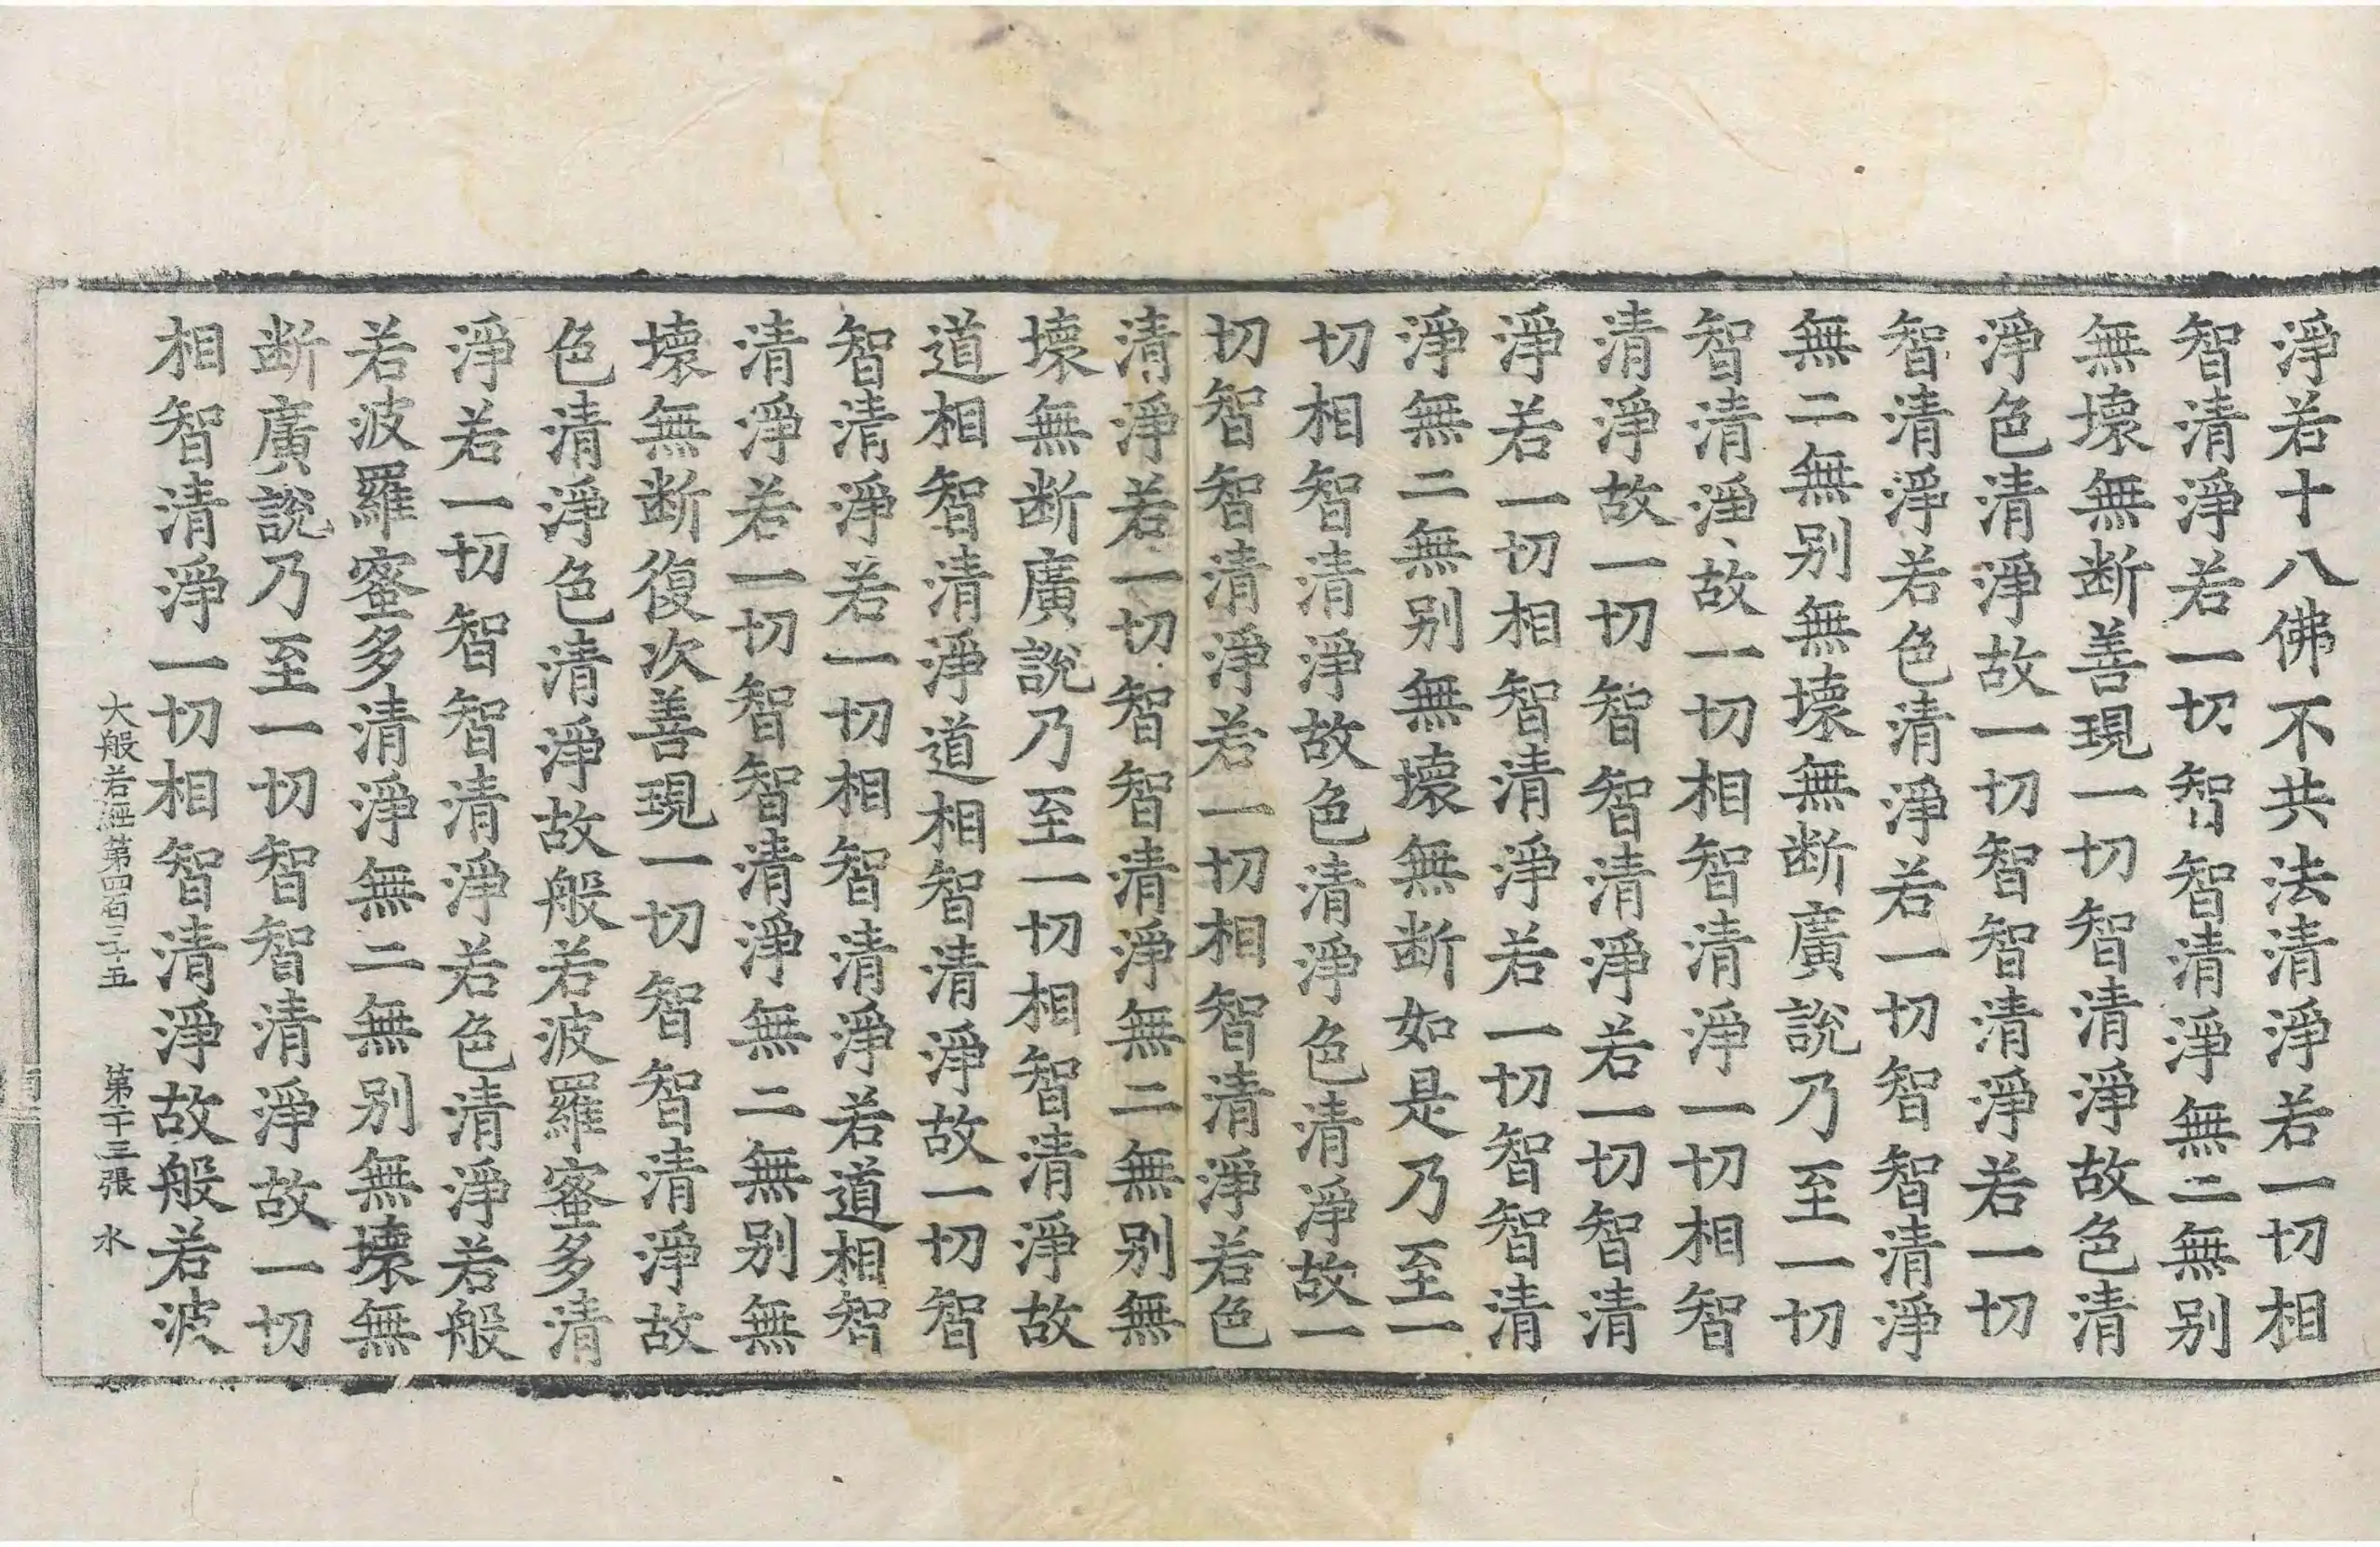 淨若十八佛不共法清淨若一切相
智清淨若一切智智清淨無二無別
無壞無断善現一切智清淨故色清
淨色清淨故一切智智清淨若一切
智清淨若色清淨若一切智智清淨
無二無別無壞無断廣說乃至一切
智清淨故一切相智清淨一切相智
清淨故一切智智清淨若一切智清
淨若一切相智清淨若一切智智清
淨無二無別無壞無断如是乃至一
切相智清淨故色清淨色清淨故一
切智智清淨若一切相智清淨若色
清淨若一切智智清淨無二無別無
壞無断廣說乃至一切相智清淨故
道相智清淨道相智清淨故一切智
智清淨若一切相智清淨若道相智
清淨若一切智智清淨無二無別無
壞無断復次善現一切智智清淨故
色清淨色清淨故般若波羅蜜多清
淨若一切智智清淨若色清淨若般
若波羅蜜多清淨無二無別無壞無
断廣說乃至一切智智清淨故一切
相智清淨一切相智清淨故般若波
大般若經第四百三十五 第十三張 水